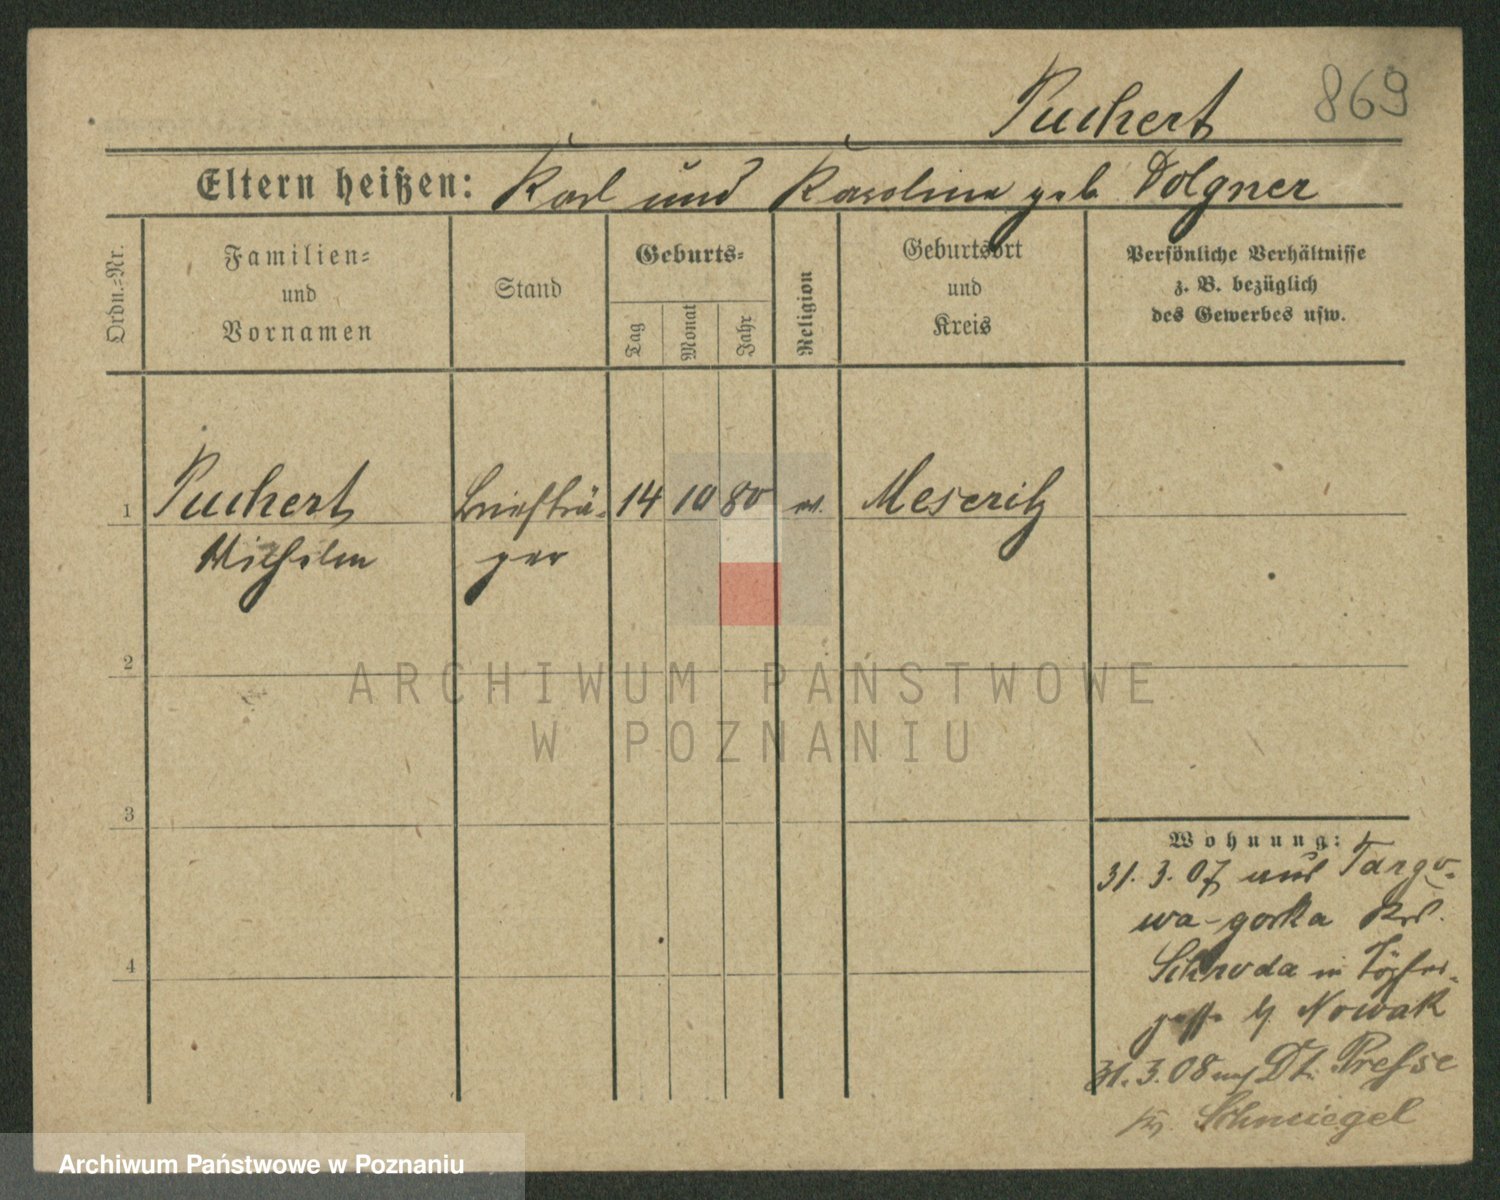 869
Puchert
Eltern heißen: Karl und Karolina geb. Dolgner
Ordn.=Nr.
Familien=
und
Vornamen
Stand
Geburts=
Tag
Monat
Jahr
Religion
Geburtsort
und
Kreis
Persönliche Verhältnisse
z. B. bezüglich
des Gewerbes usw.
1 Puchert Briefträ- 14 10 80 ev. Meseritz
Wilhelm ger
2
ARCHIWUM PAŃSTWOWE
W POZNANIU
3
Wohnung:
31. 3. 07 aus Targo-
wa-gorka Krs.
Schroda in Töpfer-
gasse b/ Nowak
4
31.3.08 nach Dt. Presse
Schmiegel
Archiwum Państwowe w Poznaniu